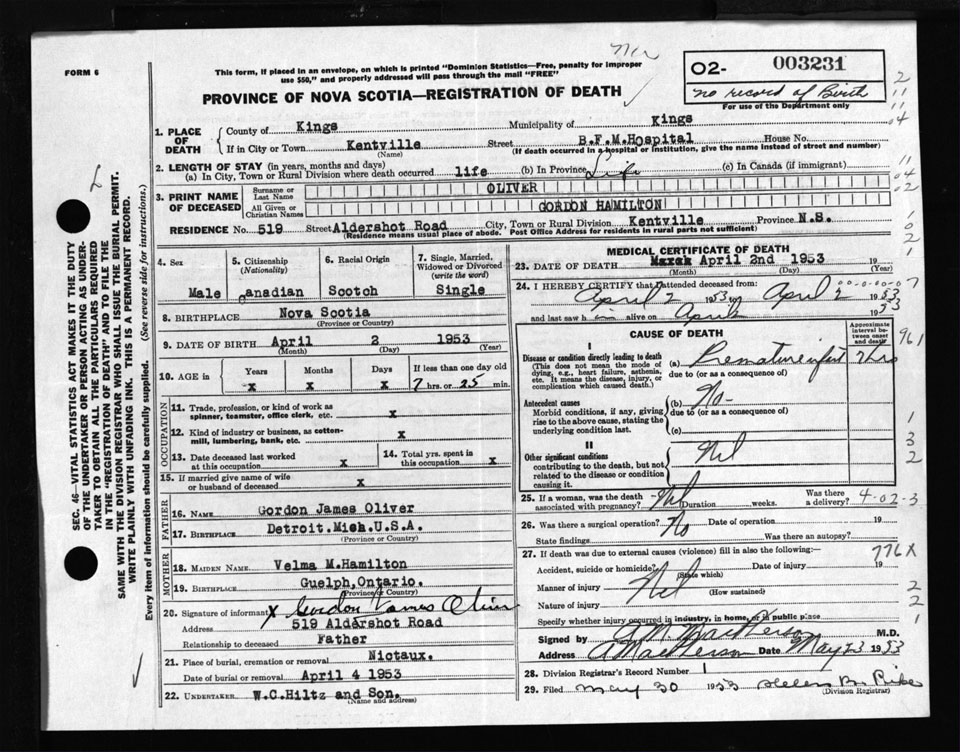 FORM 6
This form, if placed in an envelope, on which is printed "Dominion Statistics—Free, penalty for improper
use $50," and properly addressed will pass through the mail "FREE"
PROVINCE OF NOVA SCOTIA—REGISTRATION OF DEATH
O2- 003231
no record of Birth
For use of the Department only
1. PLACE OF DEATH
County of Kings Municipality of Kings
If in City or Town Kentville Street B.F.M.Hospital House No.
(Name) (If death occurred in a hospital or institution, give the name instead of street and number)
2. LENGTH OF STAY (in years, months and days)
(a) In City, Town or Rural Division where death occurred life (b) In Province Life (c) In Canada (if immigrant)
3. PRINT NAME OF DECEASED
Surname or Last Name OLIVER
All Given or Christian Names GORDON HAMILTON
RESIDENCE No. 519 Street Aldershot Road City, Town or Rural Division Kentville Province N.S.
(Residence means usual place of abode. Post Office Address for residents in rural parts not sufficient)
4. Sex Male
5. Citizenship (Nationality) Canadian
6. Racial Origin Scotch
7. Single, Married, Widowed or Divorced (write the word) Single
8. BIRTHPLACE Nova Scotia
(Province or Country)
9. DATE OF BIRTH April 2 1953
(Month) (Day) (Year)
10. AGE in Years x Months x Days x If less than one day old 7 hrs. or 25 min.
OCCUPATION
11. Trade, profession, or kind of work as spinner, teamster, office clerk, etc. x
12. Kind of industry or business, as cotton-mill, lumbering, bank, etc. x
13. Date deceased last worked at this occupation x
14. Total yrs. spent in this occupation x
15. If married give name of wife or husband of deceased x
FATHER
16. NAME Gordon James Oliver
17. BIRTHPLACE Detroit.Mich.U.S.A.
(Province or Country)
MOTHER
18. MAIDEN NAME Velma M.Hamilton
19. BIRTHPLACE Guelph,Ontario.
(Province or Country)
20. Signature of informant X Gordon James Oliver
Address 519 Aldershot Road
Relationship to deceased Father
21. Place of burial, cremation or removal Nictaux.
Date of burial or removal April 4 1953
22. UNDERTAKER W.C.Hiltz and Son.
(Name and address)
MEDICAL CERTIFICATE OF DEATH
23. DATE OF DEATH April 2nd 1953 19
(Month) (Day) (Year)
24. I HEREBY CERTIFY that I attended deceased from:
April 2 1953 to April 2 1953
and last saw h im alive on April 2 1953
CAUSE OF DEATH
Approximate interval between onset and death
I
Disease or condition directly leading to death
(This does not mean the mode of dying, e.g., heart failure, asthenia, etc. It means the disease, injury, or complication which caused death.)
(a) Premature infant 7 hrs
due to (or as a consequence of)
Antecedent causes
Morbid conditions, if any, giving rise to the above cause, stating the underlying condition last.
(b) No-
due to (or as a consequence of)
(c)
II
Other significant conditions contributing to the death, but not related to the disease or condition causing it.
Nil
25. If a woman, was the death associated with pregnancy? Nil Duration weeks. Was there a delivery? 4-02-3
26. Was there a surgical operation? No Date of operation 19
State findings Was there an autopsy?
27. If death was due to external causes (violence) fill in also the following:— 776X
Accident, suicide or homicide? Date of injury 19
(State which)
Manner of injury Nil
(How sustained)
Nature of injury
Specify whether injury occurred in industry, in home, or in public place
Signed by A.M. MacPherson M.D.
Address Date May 23 1953
28. Division Registrar's Record Number 1
29. Filed May 30 1953 Helen B.
(Division Registrar)
SEC. 46—VITAL STATISTICS ACT MAKES IT THE DUTY
OF THE UNDERTAKER OR PERSON ACTING AS UNDER-
TAKER TO OBTAIN ALL THE PARTICULARS REQUIRED
IN THE "REGISTRATION OF DEATH" AND TO FILE THE
SAME WITH THE DIVISION REGISTRAR WHO SHALL ISSUE THE BURIAL PERMIT.
WRITE PLAINLY WITH UNFADING INK. THIS IS A PERMANENT RECORD.
Every item of information should be carefully supplied. (See reverse side for instructions.)